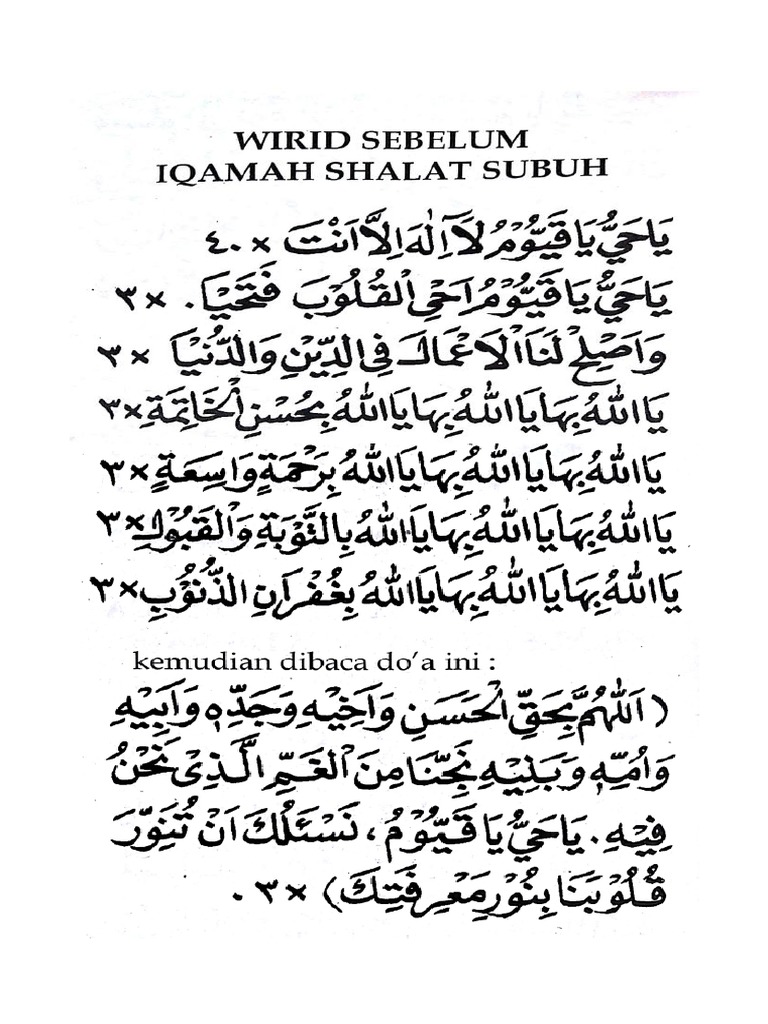 WIRID SEBELUM
IQAMAH SHALAT SUBUH
يَاحَيُّ يَاقَيُّوْمُ لَآ اِلٰهَ اِلَّا اَنْتَ × ٤٠
يَاحَيُّ يَاقَيُّوْمُ اَحْيِ الْقُلُوْبَ فَتَحْيَا. × ٣
وَاَصْلِحْ لَنَا الْاَعْمَالَ فِى الدِّيْنِ وَالدُّنْيَا × ٣
يَااَللهُ بِهَا يَااَللهُ بِهَا يَااَللهُ بِحُسْنِ الْخَاتِمَةِ × ٣
يَااَللهُ بِهَا يَااَللهُ بِهَا يَااَللهُ بِرَحْمَةٍ وَاسِعَةٍ × ٣
يَااَللهُ بِهَا يَااَللهُ بِهَا يَااَللهُ بِالتَّوْبَةِ وَالْقَبُوْلِ × ٣
يَااَللهُ بِهَا يَااَللهُ بِهَا يَااَللهُ بِغُفْرَانِ الذُّنُوْبِ × ٣
kemudian dibaca do'a ini :
( اَللّٰهُمَّ بِحَقِّ الْحَسَنِ وَاَخِيْهِ وَجَدِّهٖ وَاَبِيْهِ
وَاُمِّهٖ وَبَنِيْهِ نَجِّنَا مِنَ الْغَمِّ الَّذِىْ نَحْنُ
فِيْهِ. يَاحَيُّ يَاقَيُّوْمُ، نَسْئَلُكَ اَنْ تُنَوِّرَ
قُلُوْبَنَا بِنُوْرِ مَعْرِفَتِكَ) × ٣.